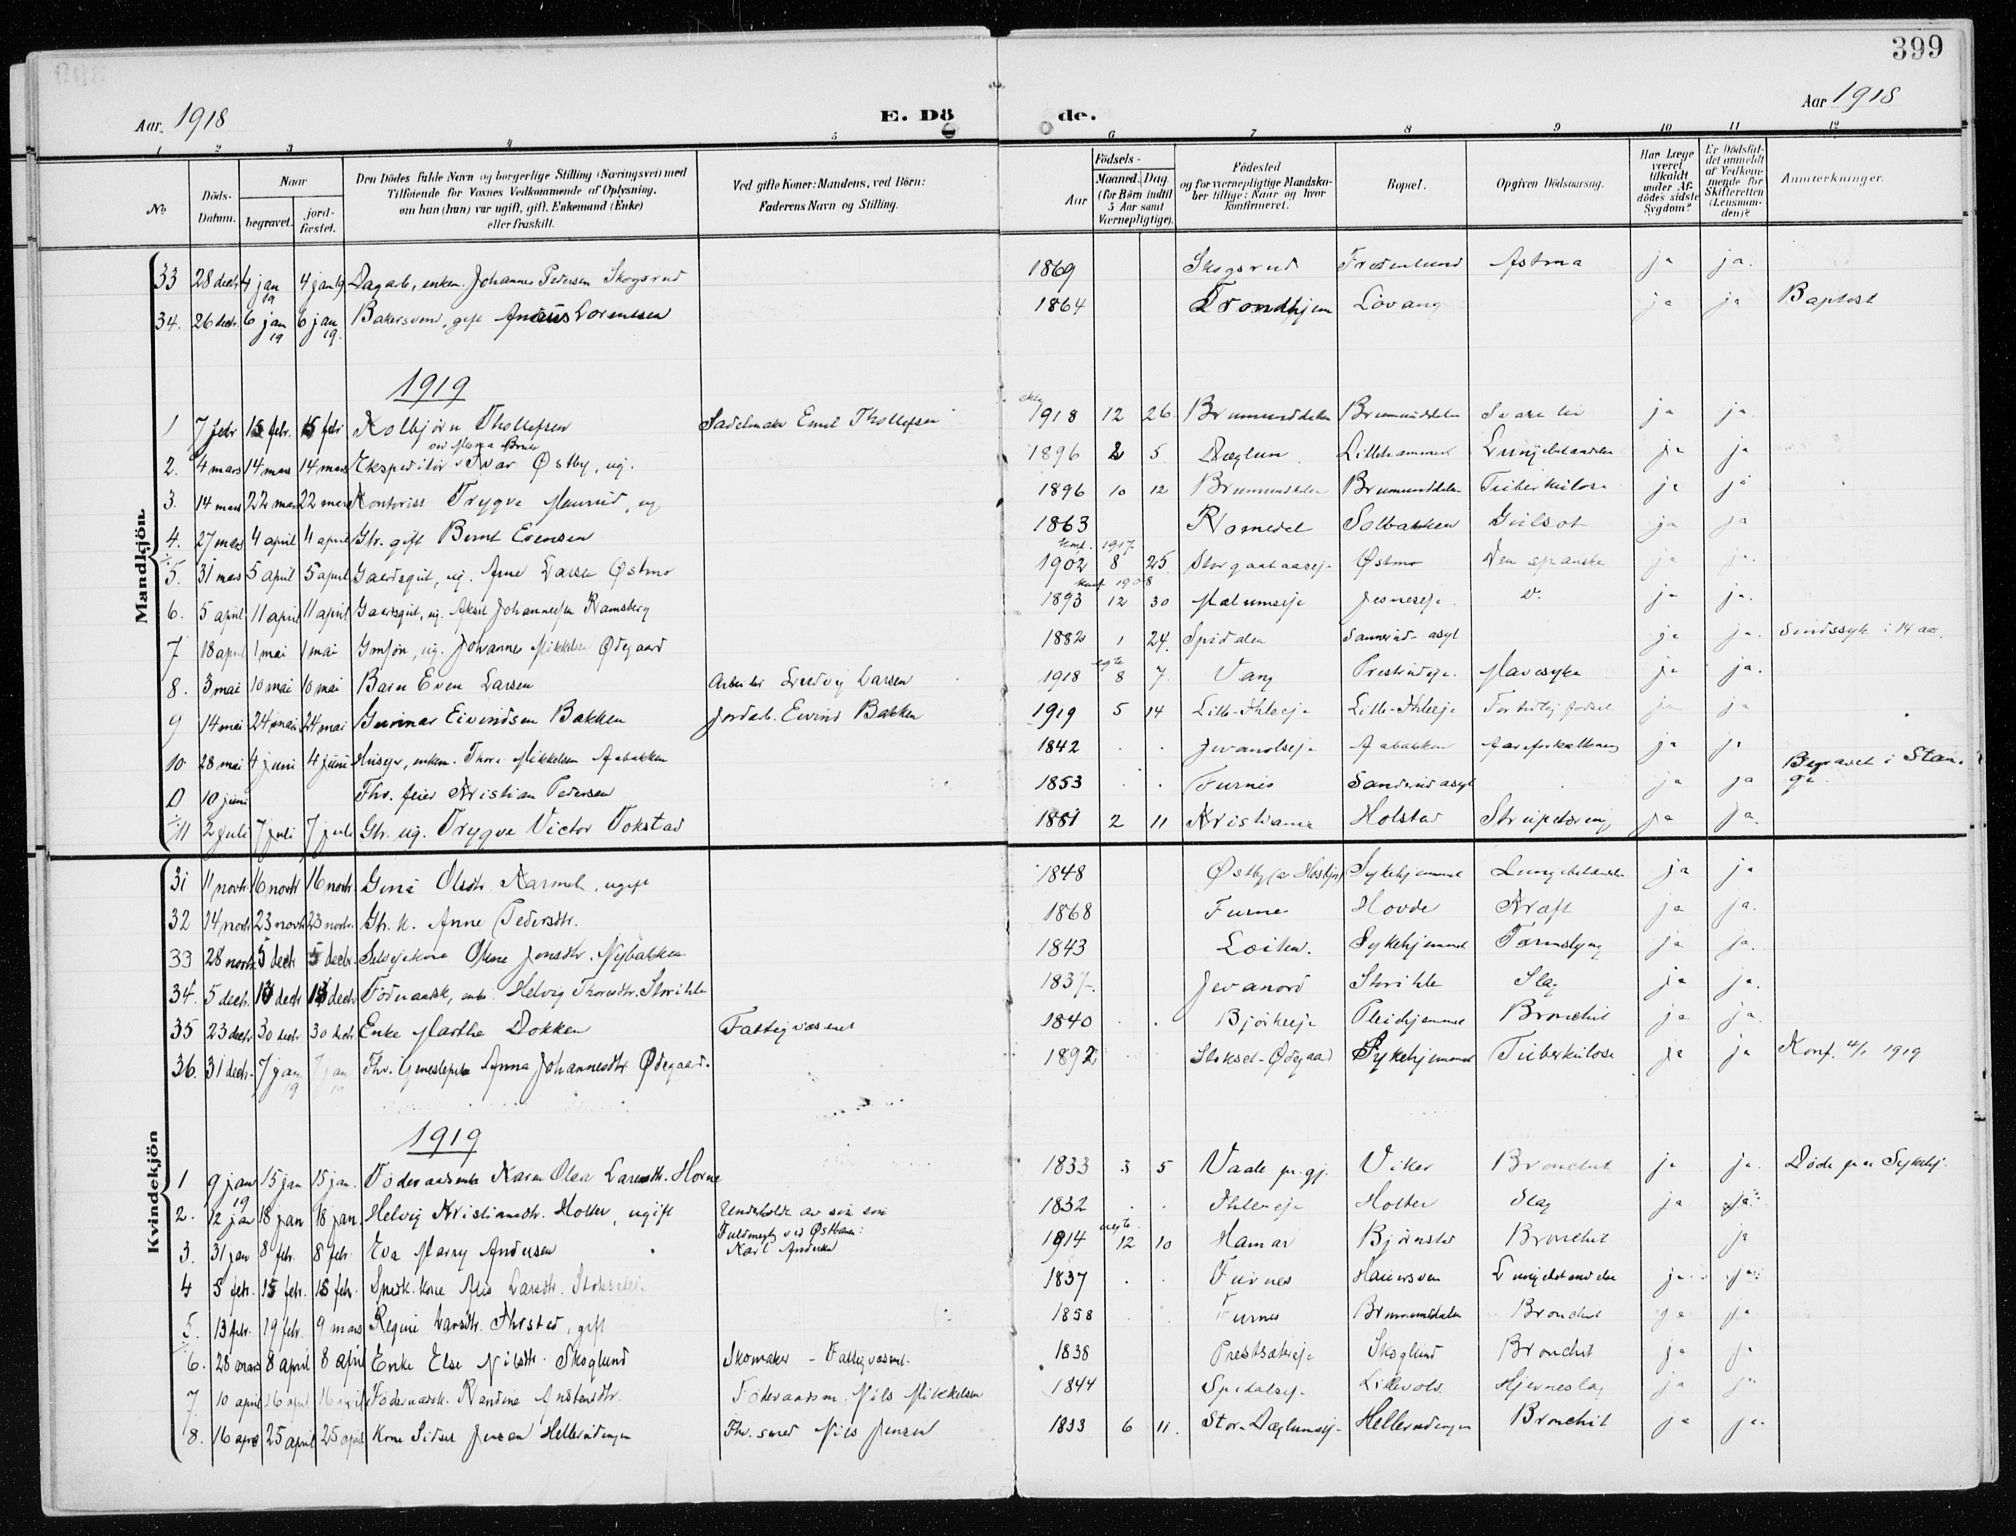 399
Aar 1918 E. Döde. Aar 1918
1 2 3 4 5 6 7 8 9 10 11 12
No
Döds-Datum.
Naar
begravet.
jord-fæstet.
Den Dödes fulde Navn og borgerlige Stilling (Næringsvei) med Tilföiende for Voxnes Vedkommende af Oplysning, om han (hun) var ugift, gift, Enkemand (Enke) eller fraskilt.
Ved gifte Koner: Mandens, ved Börn: Faderens Navn og Stilling.
Födsels-
Aar
Maaned. Dag
(for Börn indtil 3 Aar samt Værnepligtige).
Födested og for værnepligtige Mandskaber tillige: Naar og hvor konfirmeret.
Bopæl.
Opgiven Dödsaarsag.
Har Læge været tilkaldt under Afdödes sidste Sygdom?
Er Dödsfaldet anmeldt af Vedkommende for Skifteretten (Lensmanden)?
Anmerkninger.
Mandkjön.
33 28 decb 4 jan 19 4 jan 19 Dagarb, enkem. Johannes Pedersen Skogsrud 1869 Skogsrud Fredenlund Astma ja ja.
34. 26 decb. 6 jan 19 6 jan 19. Bakersvend, gift Lorentzen 1864 Trondhjem Lovang ja ja Baptist
1919
1 7 febr 15 febr. 15 febr Kolbjörn Thollefsen Sadelmaker Emil Thollefsen 1918 12 26 Brumunddalen Brumunddalen ja ja.
2. 4 mars 14 mars 14 mars Ekspeditör Ivar Østby, ug. 1896 2 5. Dæglum Lillehammer Lungebetændelse ja ja
3. 14 mars 22 mars 22 mars Kontorist Trygve Maurud, ug 1896 10 12 Brumunddalen Brumunddalen Tuberkulose ja ja
4. 27 mars 4 april 4 april Gbr. gift Bernt Evensen 1863 Romedal Solbakken Gulsot ja ja
5. 31 mars 5 april 5 april Gaardsgut, ug. Arne Larsen Østmo 1902 konf. 1917 8 25 Østmo Den spanske ja ja.
6. 5 april 11 april 11 april Gaardsgut, ug. Aksel Johannessen Ramsberg 1893 konf 1908 12 30 Malumseje Jesneseje. D. ja ja.
7 18 april 1 mai 1 mai Gmsøn, ug. Johannes Mikkelsen Ødegaard 1882 1 24. Spidalen Sannerud asyl ja ja. Sindssyk i 14 aar.
8. 3 mai 10 mai 10 mai Barn Even Larsen Arbeider Ludvig Larsen 1918 egte 8 7. Vang Prestrudeje. Mavesyke ja ja.
9 14 mai 24 mai 24 mai Gunnar Eivindsen Bakken Jordarb. Eivind Bakken 1919 5 14 Lille-Ihleeje Lille-Ihleeje For tidlig födsel ja ja
10 28 mai 4 juni 4 juni Huseje, enkem. Thore Mikkelsen Aabakken 1842 . . Jevanolseje Aabakken Aareforkalkning ja ja
D 10 juni Fhv. feier Kristian Pedersen 1853 . . Furnes Sanderud asyl ja ja Begravet i Stange.
11 2 juli 7 juli 7 juli Gbr. ug. Trygve Victor Tokstad 1881 2 11 Kristiania Holstad Strupetæring ja ja.
Kvindekjön
31 11 novb. 16 novb 16 novb. Gina Olsdtr. Karmel, ugift 1848 Østby Sykehjemmet Lungebetændelse ja ja
32 14 novb 23 novb 23 novb. Gbr. k. Anne Pedersdtr. 1868 Furnes Hovde Kræft ja ja.
33 28 novb 5 decb 5 decb. Selvejerkone Oline Jonsdtr. Nybakken 1843 Löiten. Sykehjemmet Tarmslyng ja ja.
34. 5 decb. 13 decb 13 decb Föderaadsk, enke Helvig Thoresdtr. Storihle 1837. Jevanord Storihle Slag ja ja.
35 23 decb 30 decb 30 decb. Enke Marthe Dokken Fattigvæsenet 1840 . . Björkeeje Pleiehjemmet Bronchit ja ja.
36. 31 decb. 7 jan 19 7 jan 19 Fhv. Anna Johannesdtr. Ødegaard. 1892 Stokset-Ødegaard Sykehjemmet Tuberkulose ja ja Konf. 4/1 1919
1919
1 9 jan 19 15 jan 15 jan. Föderaadsenke Karen Olea Larsdtr. Horne 1833 3 5 Vaale pr.gj. Viker Bronchit ja ja. Døde paa Sykehj.
2. 12 jan 18 jan 18 jan. Helvig Kristiansdtr. Holter, ugift Underholdt av sin sön 1832 . . Ihleeje Holter Slag ja ja.
3. 31 jan 8 febr. 8 febr. Eva Marry Andersen Fuldmegtig ved Østbanen: Karl Andersen 1914 egte. 12 10 Hamar Björnstad Bronchit ja
4 5 febr. 15 febr. 15 febr. Snedk. kone Alis Larsdtr. 1837 . . Furnes Lungebetændelse ja ja.
5. 13 febr. 19 febr. 9 mars Regine Larsdtr. Ihrstad, gift 1858 Furnes Brumunddalen Bronchit ja ja.
6. 28 mars 8 april 8 april Enke Else Nilsdtr. Skoglund Skomaker - Fattigvæsenet. 1838 Prestsætereje Skoglund Bronchit ja ja
7 10 april 16 april 16 april Föderaadsk. Randine Amstensdtr. Föderaadsm. Nils Mikkelsen 1844 Spidalseje Lillevold. Hjerneslag ja ja
8. 16 april 25 april 25 april Kone Sidsel Jensen Hellerudengen Fhv. smed Nils Jensen 1833 6 11. Stor-Dæglumseje Hellerudengen Bronchit ja ja.